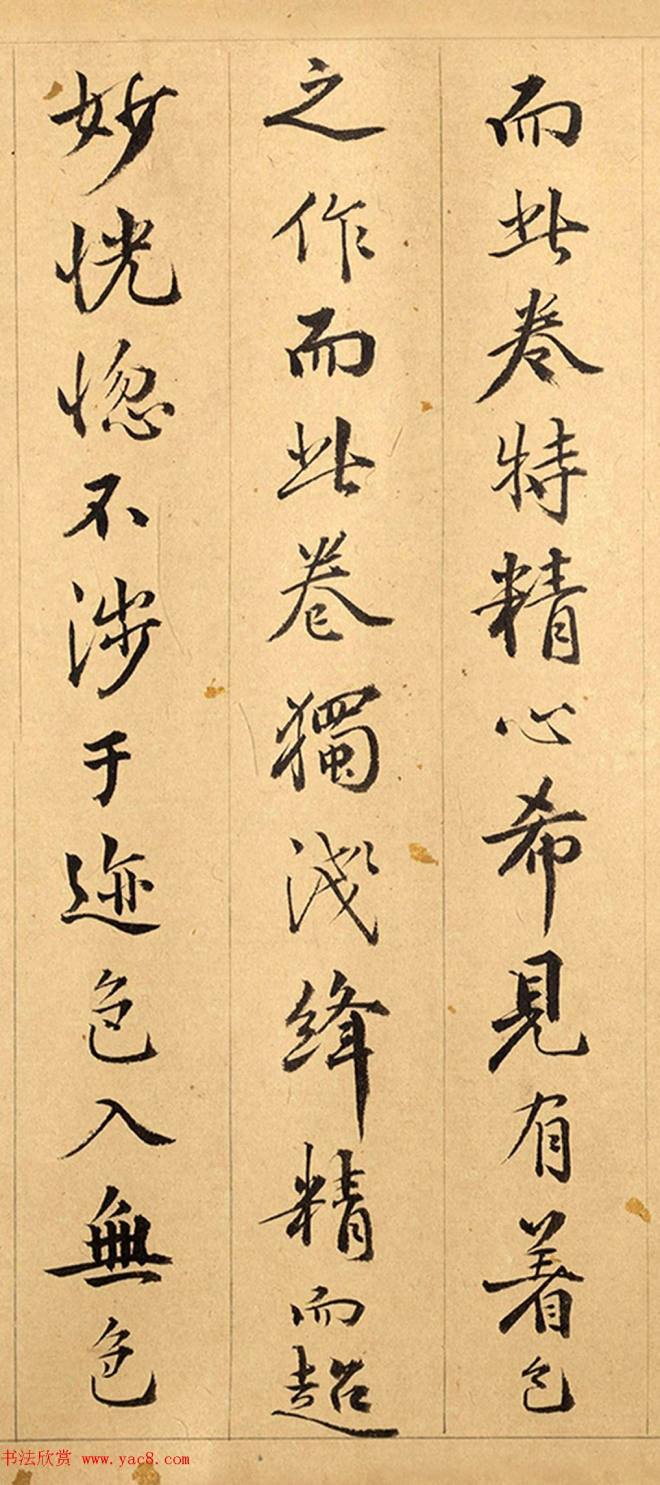 而此卷特精心希見有着色
之作而此卷獨淺絳精而超
妙恍惚不涉于迹色入無色
书法欣赏 www.yac8.com